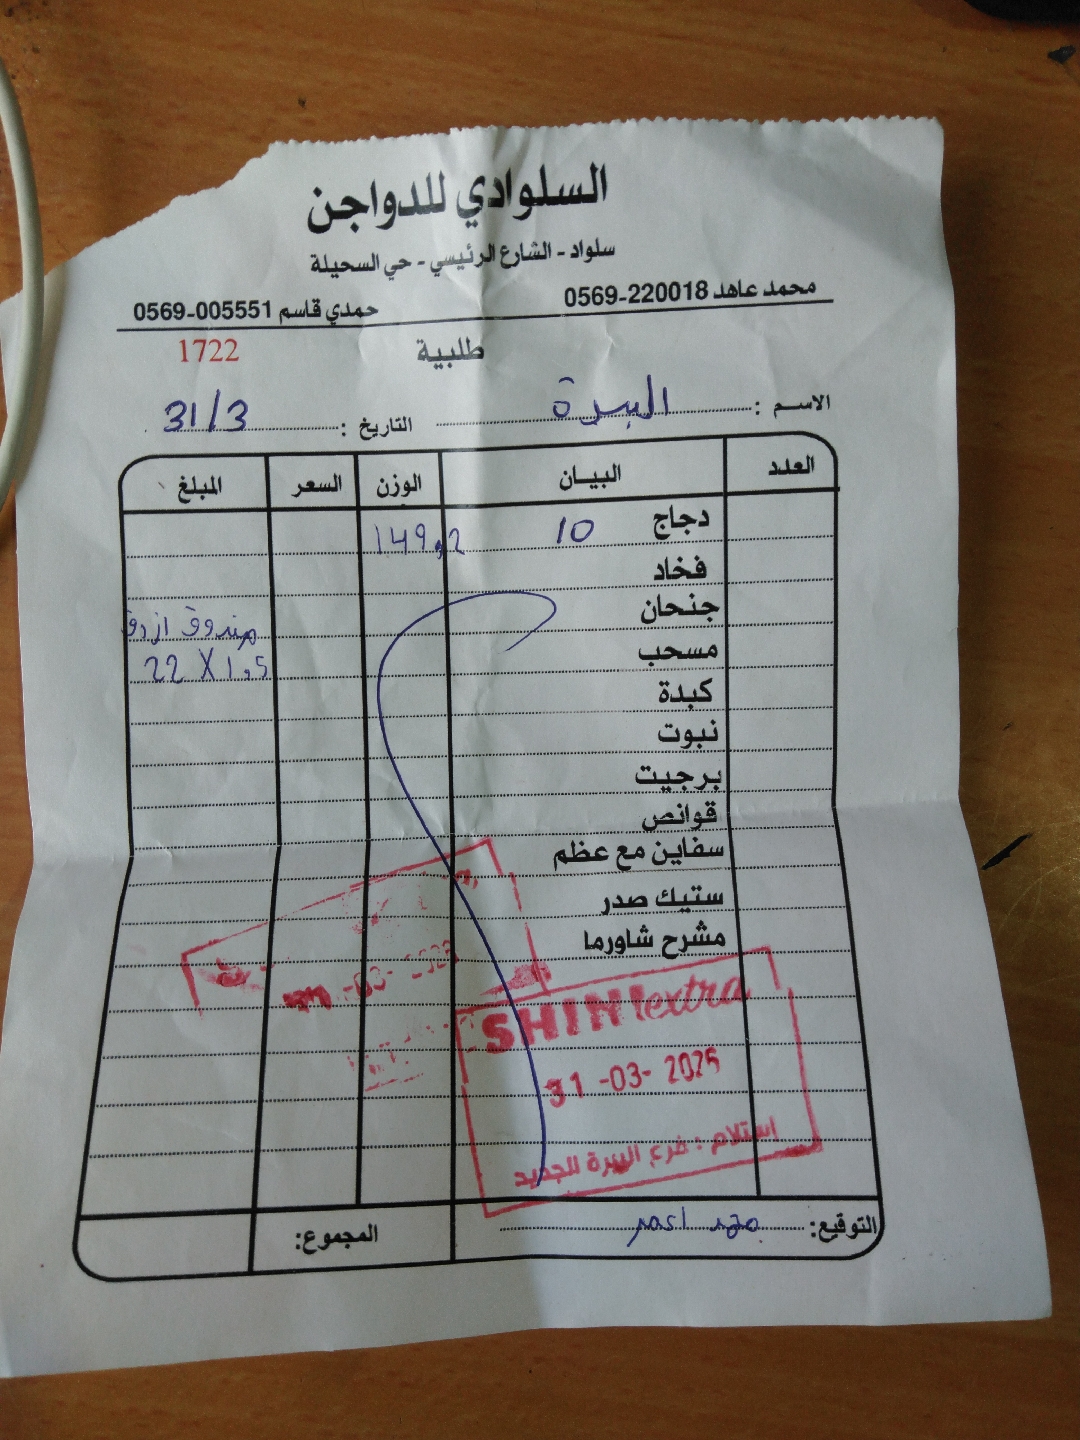 السلوادي للدواجن
سلواد - الشارع الرئيسي - حي السحيلة
محمد عاهد 0569-220018 حمدي قاسم 0569-005551
طلبية 1722
الاسم : البيرة التاريخ : 31/3
العدد البيان الوزن السعر المبلغ
دجاج 10 149.2
فخاد
جنحان
صندوق ازرق
مسحب
22 X 1.5
كبدة
نبوت
برجيت
قوانص
سفاين مع عظم
ستيك صدر
مشرح شاورما
-03-
SHINI extra
31 -03- 2025
استلام : فرع البيرة الجديد
التوقيع: محمد احمد المجموع: